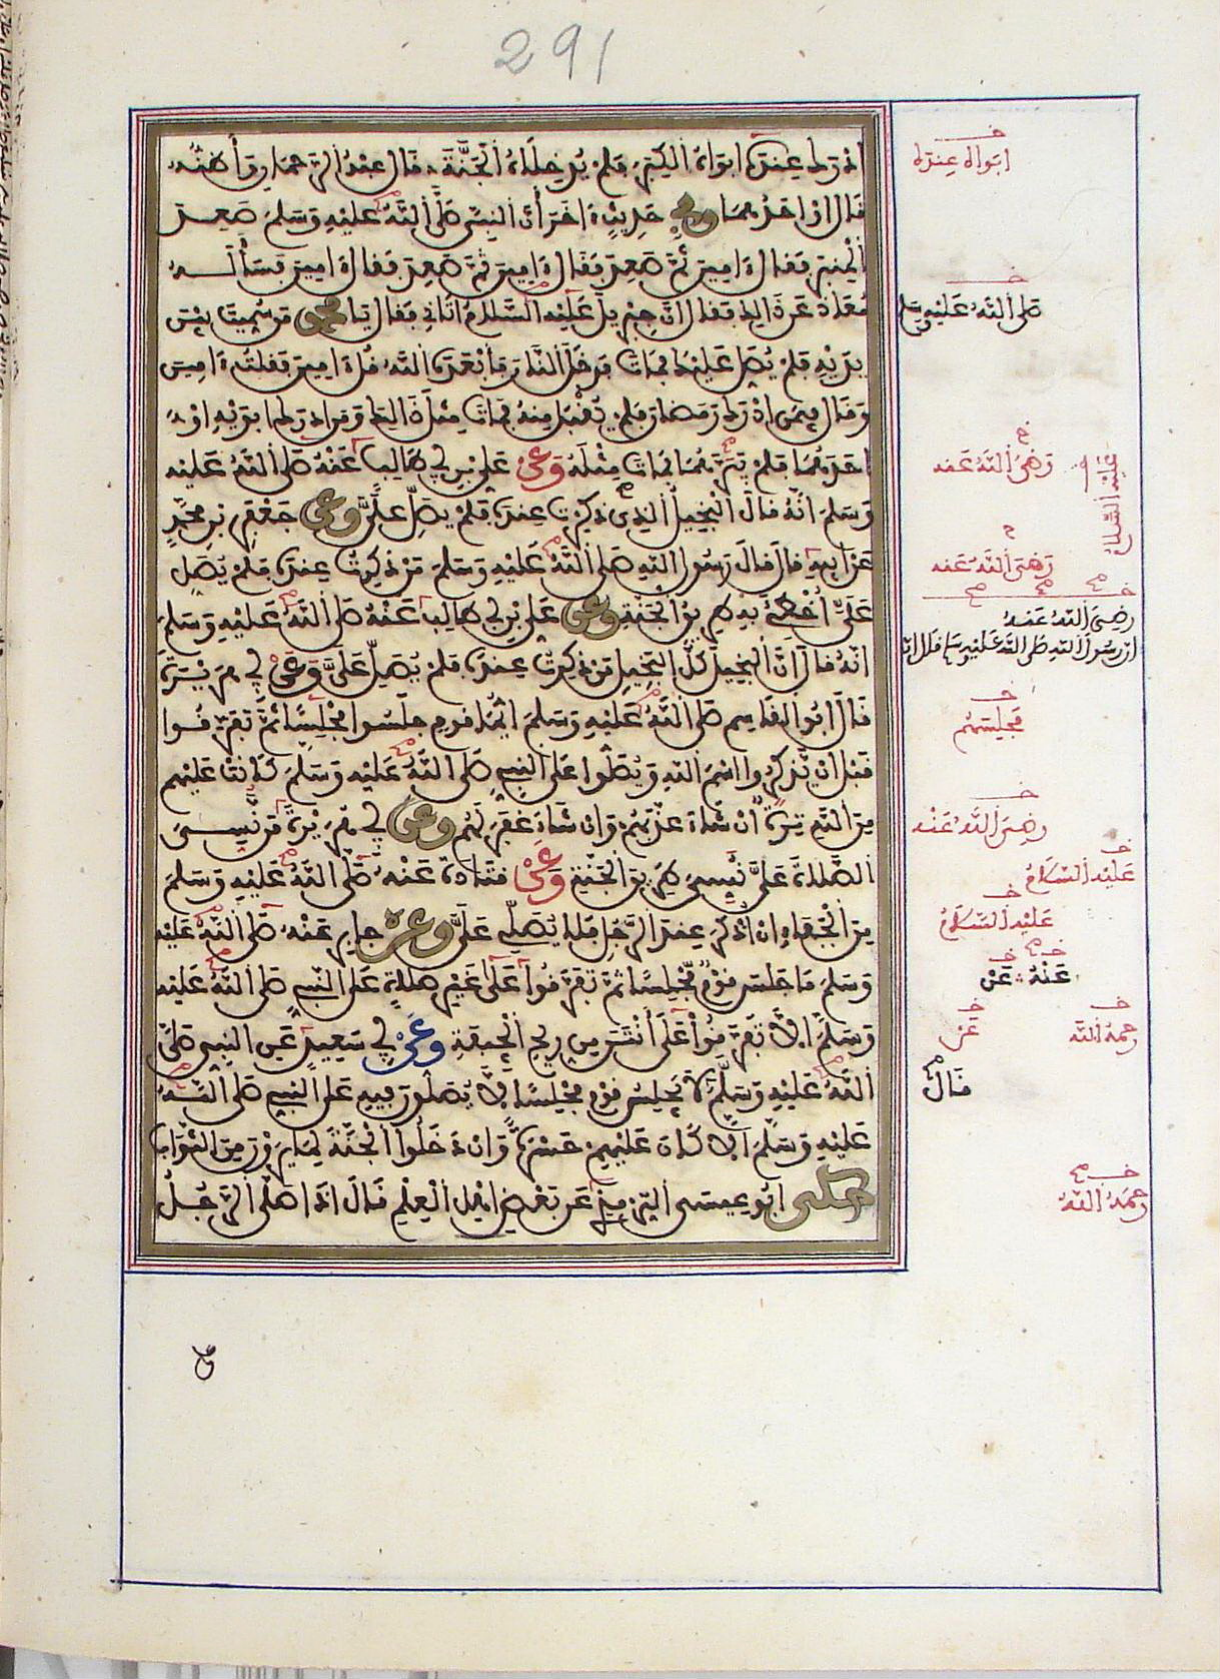 291
ادرك عنده ابواه الكبر فلم يدخلاه الجنة قال عبد الرحمان وأظنه
قال او احدهما وفي حديث ءاخر أن النبي صلى الله عليه وسلم صعد
المنبر فقال ءامين ثم صعد فقال ءامين ثم صعد فقال ءامين فسأله
معاذ عن ذالك فقال ان جبريل عليه السلام اتاني فقال يا محمد من سميت بين
يديه فلم يصل عليك فمات فدخل النار فأبعده الله قل ءامين فقلت ءامين
وقال فيمن ادرك رمضان فلم يقبل منه فمات مثل ذالك ومن ادرك ابويه او
احدهما فلم يبرهما فمات مثله وعن علي بن ابي طالب عنه صلى الله عليه
وسلم انه قال البخيل الذي ذكرت عنده فلم يصل علي وعن جعفر بن محمد
عن ابيه قال قال رسول الله صلى الله عليه وسلم من ذكرت عنده فلم يصل
علي أخطئ به طريق الجنة وعن علي بن ابي طالب عنه صلى الله عليه وسلم
انه قال ان البخيل كل البخيل من ذكرت عنده فلم يصل علي وعن ابي هريرة
قال ابو القاسم صلى الله عليه وسلم ايما قوم جلسوا مجلسا ثم تفرقوا
قبل ان يذكروا اسم الله ويصلوا على النبي صلى الله عليه وسلم كانت عليهم
من الله ترة ان شاء عذبهم وان شاء غفر لهم وعن ابي هريرة من نسي
الصلاة علي نسي طريق الجنة وعن قتادة عنه صلى الله عليه وسلم
من الجفاء ان اذكر عند الرجل فلا يصلي علي وعن جابر عنه صلى الله عليه
وسلم ما جلس قوم مجلسا ثم تفرقوا على غير صلاة على النبي صلى الله عليه
وسلم الا تفرقوا على أنتن من ريح الجيفة وعن ابي سعيد عن النبي صلى
الله عليه وسلم لا يجلس قوم مجلسا لا يصلون فيه على النبي صلى الله
عليه وسلم الا كان عليهم حسرة وان دخلوا الجنة لما يرون من الثواب
حكى ابو عيسى الترمذي عن بعض اهل العلم قال اذا صلى الرجل
ابواه عنده
صلى الله عليه وسلم
رضي الله عنه
عليه السلام
رضي الله عنه
رضي الله عنه
ان رسول الله صلى الله عليه وسلم قال ان
مجلسهم
رضي الله عنه
عليه السلام
عليه السلام
عنه عن
رحمه الله
عن
قال
رحمه الله